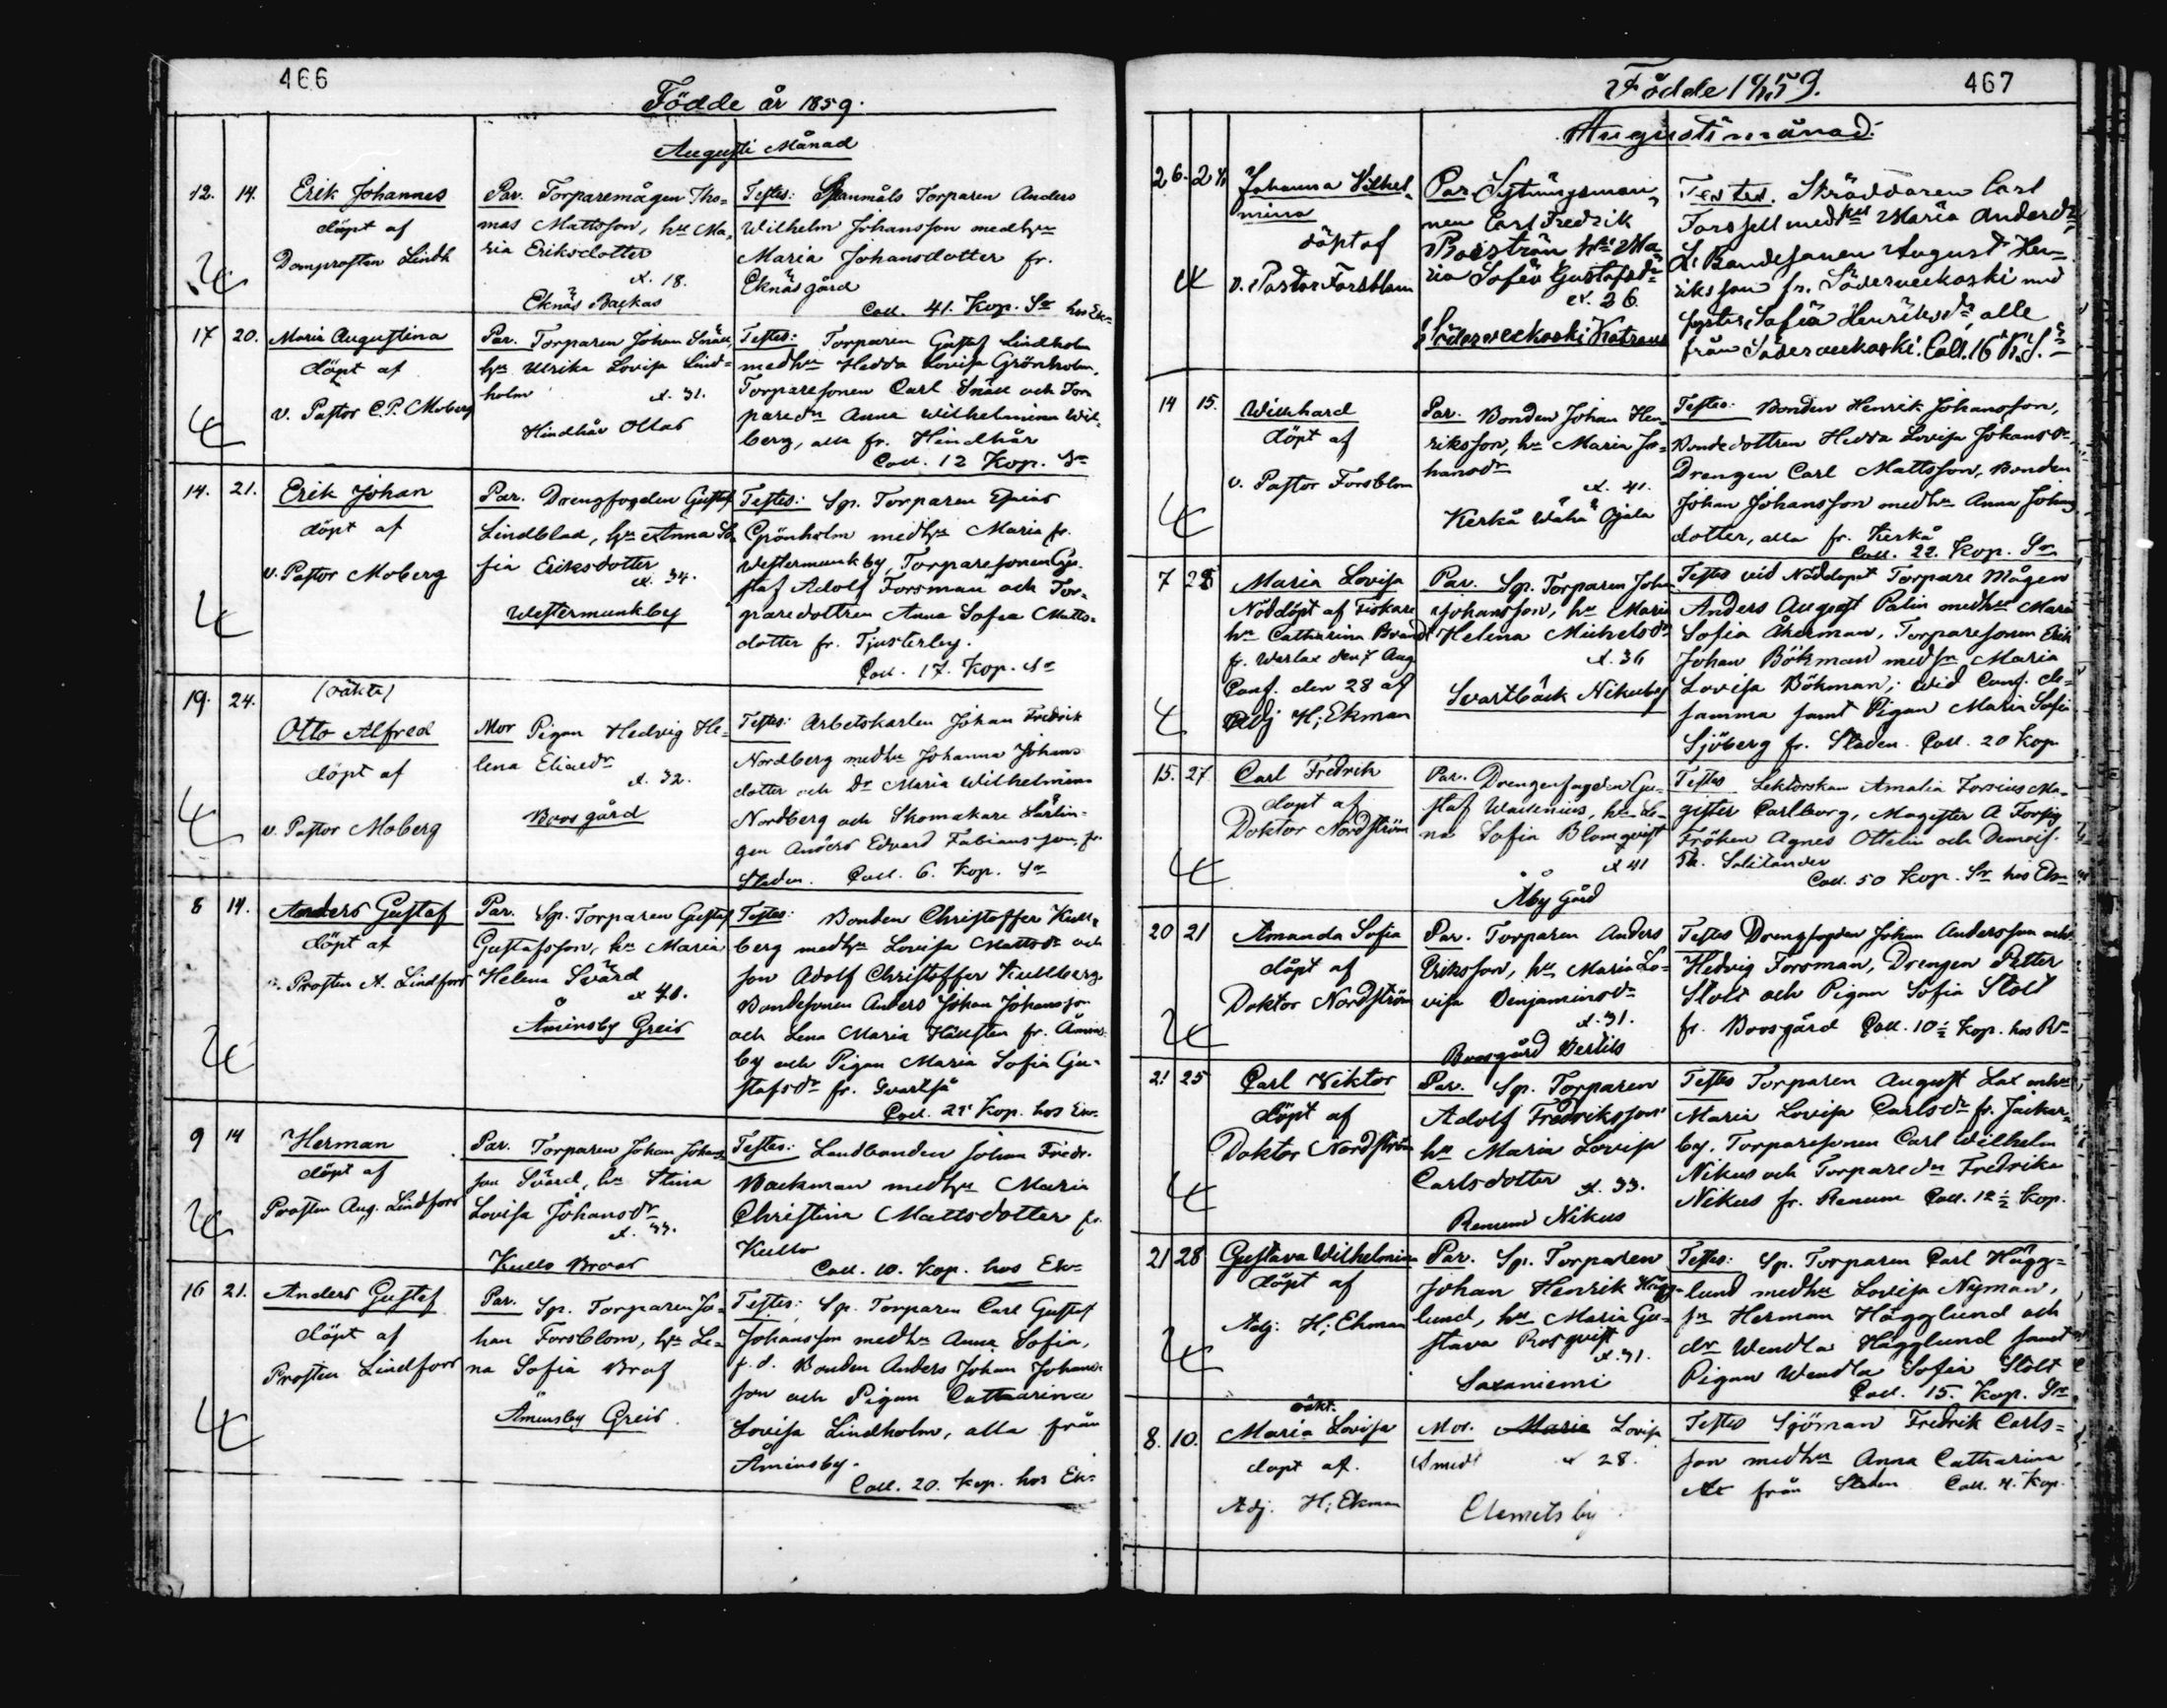 466
Födde år 1859.
Augusti Månad
12. 14. Erik Johannes
döpt af
Domprosten Lindh
Par. Torparemågen Tho=
mas Mattsson, hu Ma=
ria Eriksdotter
æt. 18.
Eknäs Backas
Testes: Spanmåls Torparen Anders
Wilhelm Johansson med hu
Maria Johansdotter fr.
Eknäs gård
Coll. 41. Kop. Sr
17 20. Maria Augustina
döpt af
v. Pastor C.P. Moberg
Par. Torparen Johan Snäll,
hu Ulrika Lovisa Lind=
holm
æt. 31.
Hindhår Ollas
Testes: Torparen Gustaf Lindholm
med hu Hedda Lovisa Grönholm,
Torparesonen Carl Snäll och Tor=
paredr Anna Wilhelmina Wil=
berg, alla fr. Hindhår
Coll. 12 Kop. Sr
14. 21. Erik Johan
döpt af
v. Pastor Moberg
Par. Drengfogden Gustaf
Lindblad, hu Anna So=
fia Eriksdotter
æt. 34.
Westermunkby
Testes: Sp. Torparen
Grönholm med hu Maria fr.
Westermunkby, Torparesonen Gu=
staf Adolf Forsman och Tor=
paredottren Anna Sofia Matts=
dotter fr. Tjusterby.
Coll. 17. Kop. Sr
19. 24. (oäkta)
Otto Alfred
döpt af
v. Pastor Moberg
Mor Pigan Hedvig He=
lena Eliædr
æt. 32.
Boos gård
Testes: Arbetskarlen Johan Fredrik
Nordberg med hu Johanna Johans
dotter och Dr Maria Wilhelmina
Nordberg och Skomakare Lärlin=
gen Anders Edvard Fabiansson, fr.
Staden. Coll. 6. Kop. Sr
8 14. Anders Gustaf
döpt af
Prosten A. Lindfors
Par. Sp. Torparen Gustaf
Gustafsson, hu Maria
Helena Svärd
æt 40.
Åminsby Greis
Testes: Bonden Christoffer Kull=
berg med hu Lovisa Mattsdr och
son Adolf Christoffer Kullberg,
Bondesonen Anders Johan Johansson
och Lena Maria Hällsten fr. Åmins=
by och Pigan Maria Sofia Gu=
stafsdr fr. Svartså
Coll. 25 Kop. hos Ek=
9 14 Herman
döpt af
Prosten Aug. Lindfors
Par. Torparen Johan Johans=
son Svärd, hu Stina
Lovisa Johansdr
æt. 33.
Kullo Broas
Testes: Landbonden Johan Fredr.
Backman med hu Maria
Christina Mattsdotter fr.
Kullo
Coll. 10. Kop. hos Ek=
16 21. Anders Gustaf
döpt af
Prosten Lindfors
Par. Sp. Torparen Jo=
han Forsblom, hu Le=
na Sofia Brof
Åminsby Greis.
Testes: Sp. Torparen Carl Gustaf
Johansson med hu Anna Sofia,
f.d. Bonden Anders Johan Johans=
son och Pigan Catharina
Lovisa Lindholm, alla från
Åminsby.
Coll. 20. Kop. hos Ek=
467
Födde 1859.
Augusti månad.
26. 28 Johanna Vilhel=
mina
döpt af
v. Pastor Forsblom
Par Sytningsman=
nen Carl Fredrik
Boström hu Ma=
ria Sofia Gustafsdr
æt. 26
Söderveckoski Katrans
Testes. Skräddaren Carl
Forssell med hu Maria Andersdr,
Bondesonen August Hen=
riksson fr. Söderveckoski med
syster Sofia Henriksdr, alle
från Söderveckoski. Coll. 16 K. S.
14 15. Willehard
döpt af
v. Pastor Forsblom
Par. Bonden Johan Hen=
riksson, hu Maria Jo=
hansdr
æt. 41.
Kerkå Wähä Ojala
Testes: Bonden Henrik Johansson,
Bondedottren Hedda Lovisa Johansdr,
Drengen Carl Mattsson, Bonden
Johan Johansson med hu Anna Johans
dotter, alla fr. Kerkå
Coll. 22. Kop. Sr
7 28 Maria Lovisa
Nöddöpt af Fiskare
hu Catharina Brandt
fr. Warlax den 7 Aug
Conf. den 28 af
Adj H; Ekman
Par. Sp. Torparen Johan
Johansson, hu Maria
Helena Michelsdr
æt. 36
Svartbäck Nikuby
Testes vid Nöddopet Torpare Mågen
Anders August Palin med hu Maria
Sofia Åkerman, Torparesonen Erik
Johan Bökman med sr Maria
Lovisa Bökman; wid Conf. de=
samma samt Pigan Maria Sofia
Sjöberg fr. Staden. Coll. 20 Kop
15. 27 Carl Fredrik
döpt af
Doktor Nordström
Par. Drengenfogden Gu=
staf Wadenius, hu Le=
na Sofia Blomqvist
æt 41
Åby Gård
Testes Lektorskan Amalia Forsius Ma=
gister Carlborg, Magister A Forsig
Fröken Agnes Ottelin och Demois.
Th. Solitander
Coll. 50 Kop. Sr hos Ek=
20 21 Amanda Sofia
döpt af
Doktor Nordström
Par. Torparen Anders
Eriksson, hu Maria Lo=
visa Benjaminsdr
æt. 31.
Boosgård Bertils
Testes Drengfogden Johan Andersson och hu
Hedvig Forsman, Drengen Petter
Stolt och Pigan Sofia Stolt
fr. Boosgård Coll. 10½ Kop. hos
21 25 Carl Viktor
döpt af
Doktor Nordström
Par. Sp. Torparen
Adolf Fredriksson
hu Maria Lovisa
Carlsdotter æt. 33.
Renum Nikus
Testes Torparen August Lax och hu
Maria Lovisa Carlsdr fr. Jackar=
by, Torparesonen Carl Wilhelm
Nikus och Torparedr Fredrika
Nikus fr. Renum Coll. 12½ Kop.
21 28 Gustava Wilhelmina
döpt af
Adj: H; Ekman
Par. Sp. Torparen
Johan Henrik Hägg=
lund, hu Maria Gu=
stava Rosqvist
æt. 31.
Saxaniemi
Testes: Sp. Torparen Carl Hägg=
lund med hu Lovisa Nyman,
sn Herman Hägglund och
dr Wendla Hägglund samt
Pigan Wendla Sofia Stolt
Coll. 15. Kop. Sr
8. 10. oäkt.
Maria Lovisa
döpt af.
Adj. H; Ekman
Mor. Maria Lovisa
Smidt æt 28.
Clemets by
Testes Sjöman Fredrik Carls=
son med hu Anna Catharina
från Staden Coll. 4. Kop.